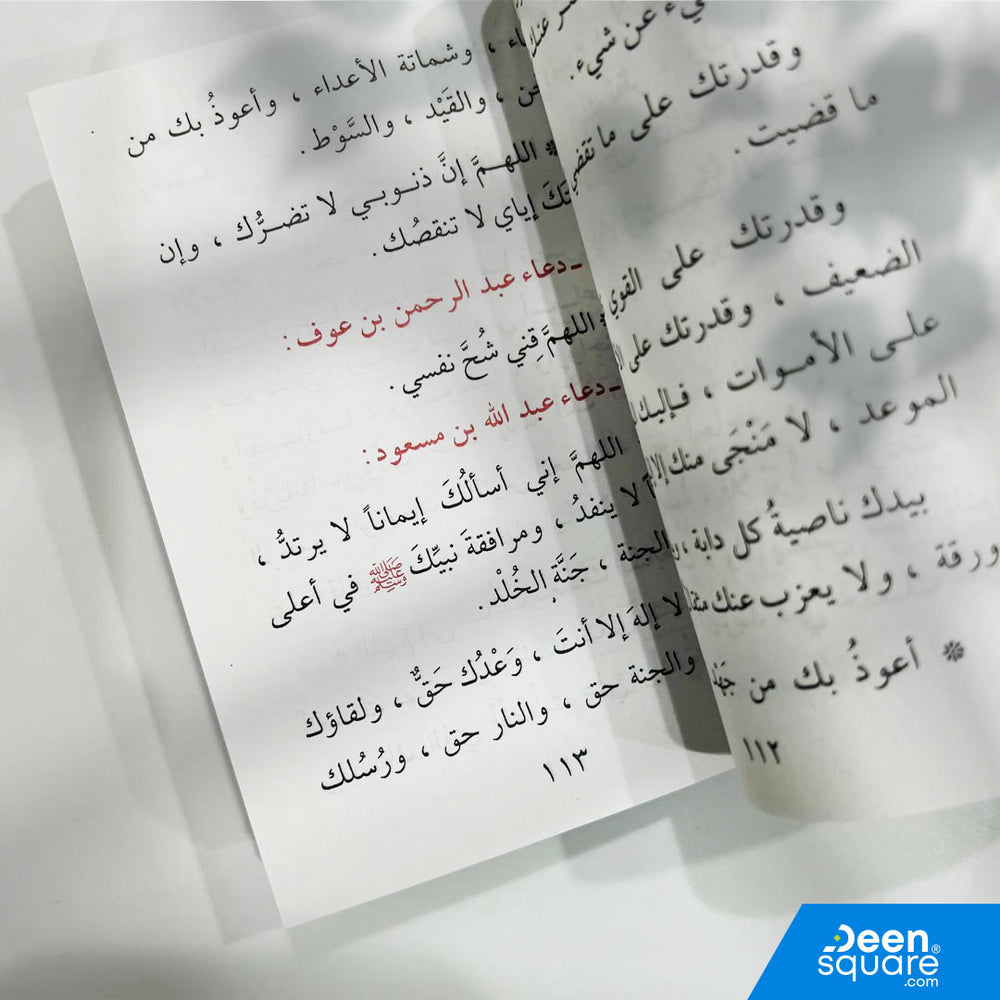 يء عن شيء.
وقدرتك على ما تقضي
ما قضيت.
وقدرتك على القوي
الضعيف ، وقدرتك على
على الأموات ، فإليك
الموعد ، لا مَنْجَى منك إلا
بيدك ناصيةُ كل دابة ،
ورقة ، ولا يعزب عنك
* أعوذُ بك من
١١٢
، وشماتة الأعداء ، وأعوذُ بك من
، والقَيْد ، والسَّوْط.
* اللهمَّ إنَّ ذنوبي لا تضرُّك ، وإن
إياي لا تنقصُك.
ـ دعاء عبد الرحمن بن عوف:
* اللهمَّ قِني شُحَّ نفسي.
ـ دعاء عبد الله بن مسعود:
اللهمَّ إني أسألُكَ إيماناً لا يرتدُّ ،
لا ينفدُ ، ومرافقةَ نبيِّكَ ﷺ في أعلى
الجنة ، جَنَّةِ الخُلْد.
لا إلهَ إلا أنتَ ، وَعْدُك حَقٌّ ، ولقاؤك
والجنة حق ، والنار حق ، ورُسُلك
١١٣
Deen®
square
.com